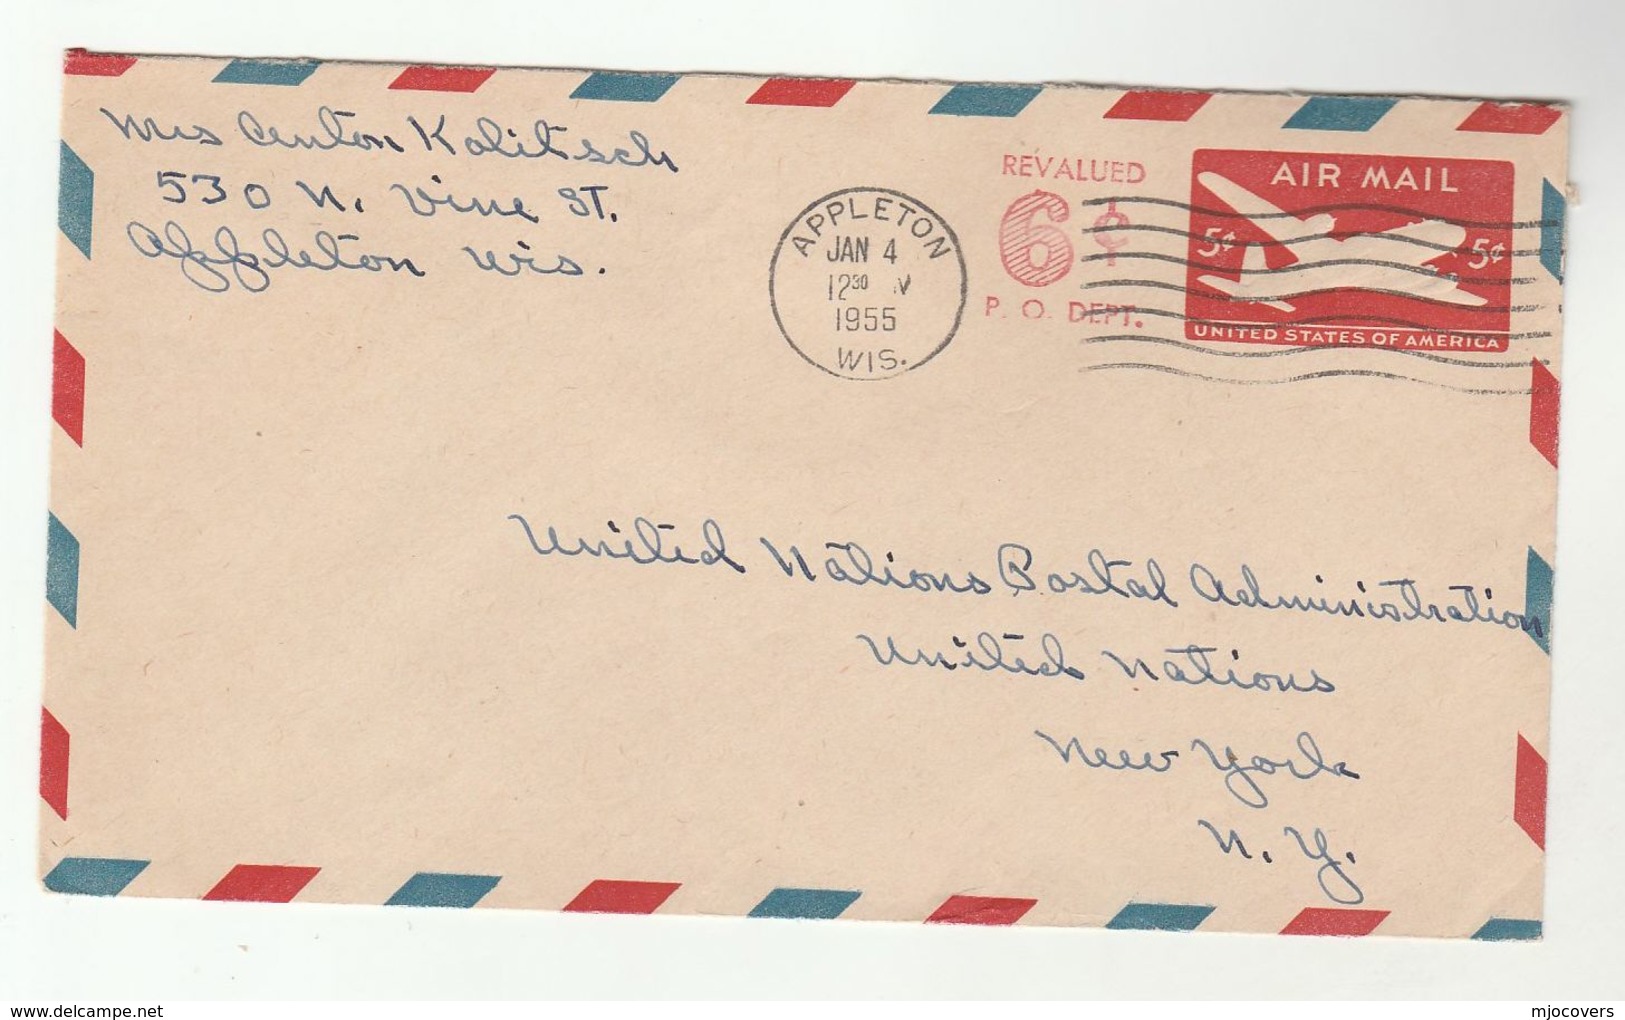 Mrs Anton Kolitsch
530 N. Vine ST.
Appleton Wis.
APPLETON
JAN 4
12 30
1955
WIS.
REVALUED
6¢
P. O. DEPT.
AIR MAIL
5¢ 5¢
UNITED STATES OF AMERICA
United Nations Postal Administration
United Nations
New York
N. Y.
delcampe.net
mjocovers